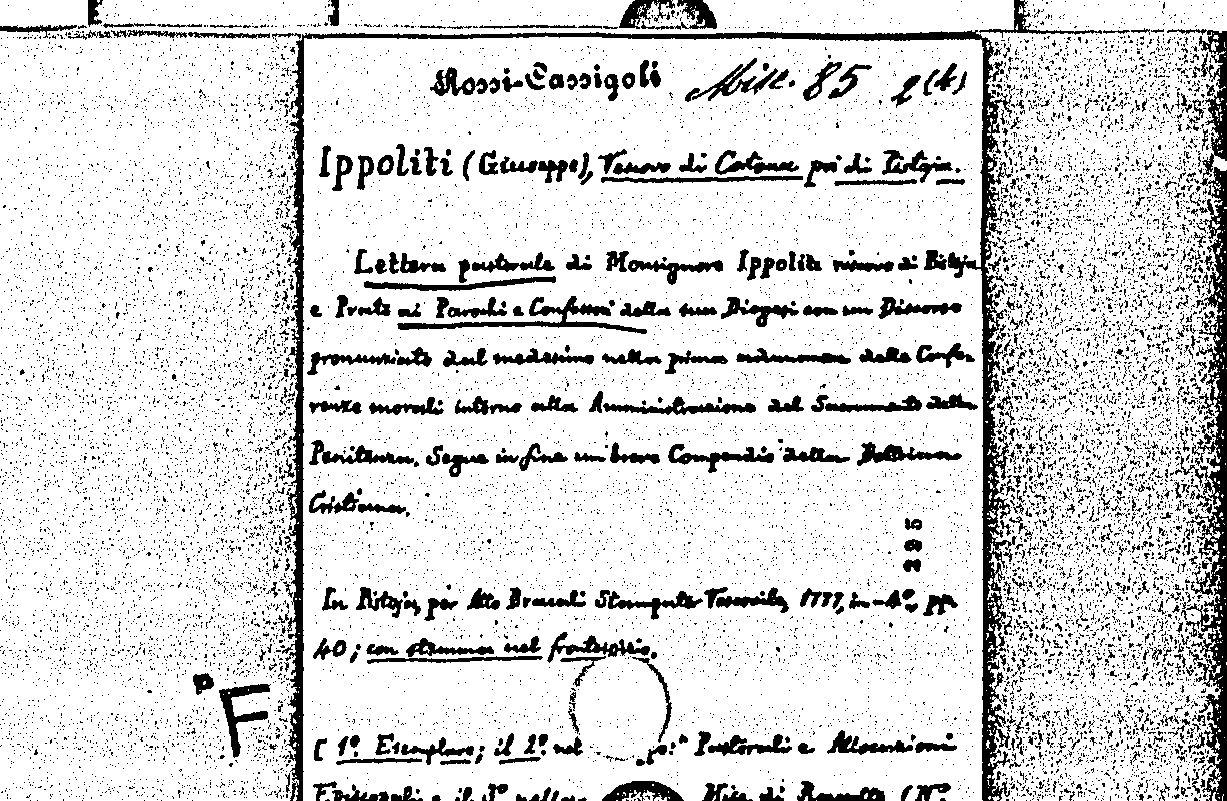 Rossi-Cassigoli Misc. 85 2(t)
Ippoliti (Giuseppe), Vescovo di Cortona poi di Pistoja.
Lettera pastorale di Monsignore Ippoliti vescovo di Pistoja
e Prato ai Parochi e Confessori della sua Diogesi con un Discorso
pronunziato dal medesimo nella prima adunanza delle Confe-
renze morali intorno alla Amministrazione del Sacramento della
Penitenza. Segue in fine un breve Compendio della Dottrina
Cristiana.
385
In Pistoja, per Atto Bracali Stampator Vescovile, 1777, in-4º, pp.
40; con stemma nel frontespizio.
F
[1º Esemplare; il 2º nel : " Pastorali e Allocuzioni
Episcopali e il 3º Misc. di (Nº